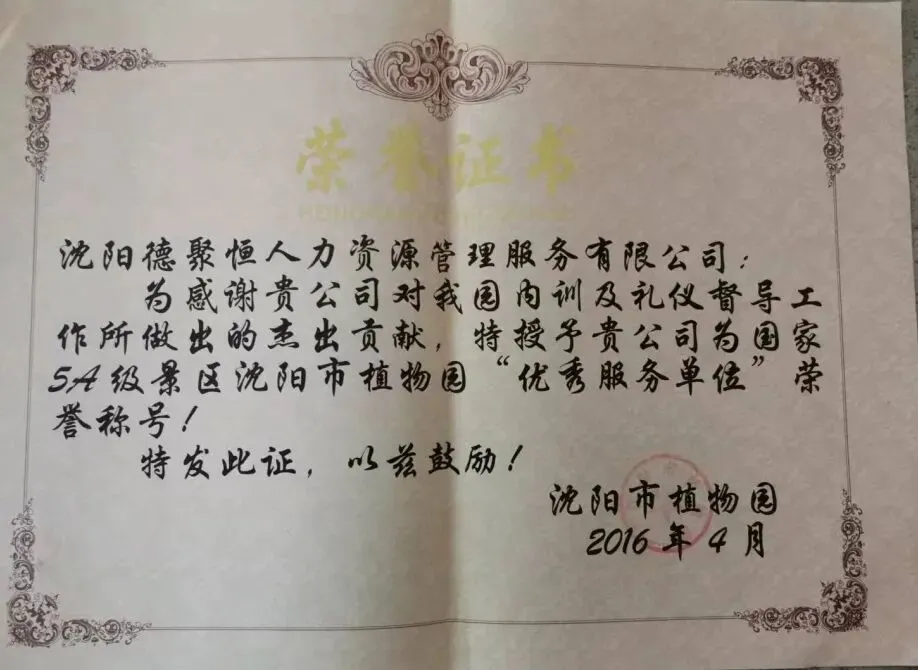 荣誉证书
沈阳德聚恒人力资源管理服务有限公司：
为感谢贵公司对我园内训及礼仪督导工
作所做出的杰出贡献，特授予贵公司为国家
5A级景区沈阳市植物园“优秀服务单位”荣
誉称号！
特发此证，以兹鼓励！
沈阳市植物园
2016年4月